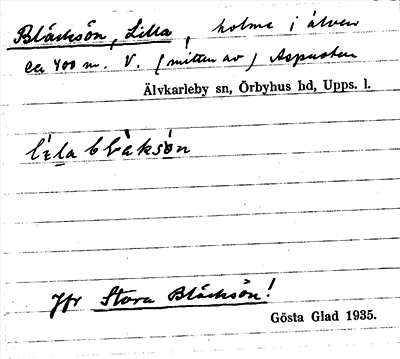 Bläcksön, Lilla, holme i älven
ca 400 m. V. (mitten av) Aspnäset
Älvkarleby sn, Örbyhus hd, Upps. l.
Jfr Stora Bläcksön!
Gösta Glad 1935.